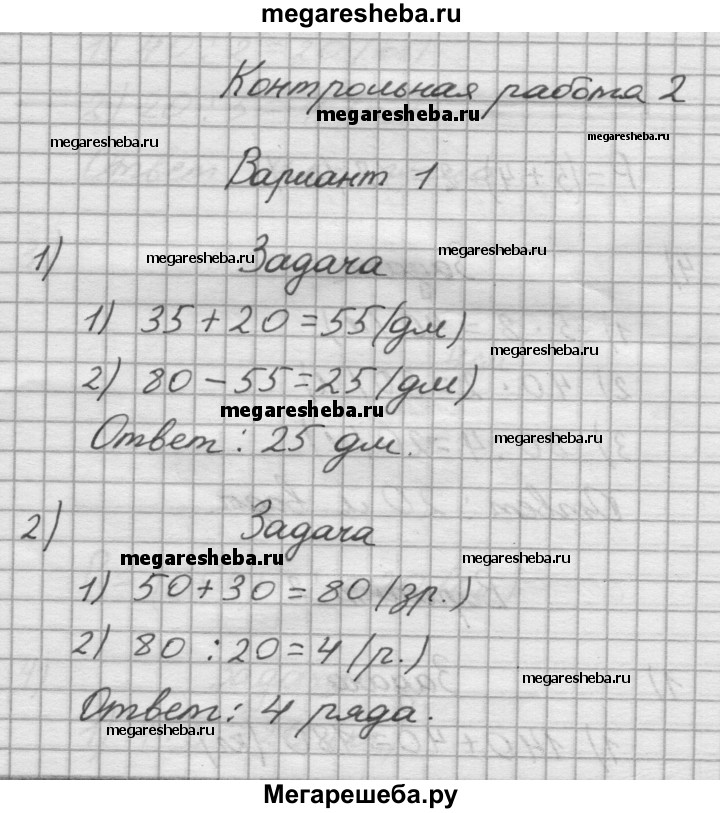 megaresheba.ru
Контрольная работа 2
megaresheba.ru
megaresheba.ru
Вариант 1
megaresheba.ru
1) Задача
megaresheba.ru
1) 35 + 20 = 55 (дм)
megaresheba.ru
2) 80 - 55 = 25 (дм)
megaresheba.ru
Ответ: 25 дм.
megaresheba.ru
2) Задача
megaresheba.ru
megaresheba.ru
1) 50 + 30 = 80 (зр.)
2) 80 : 20 = 4 (р.)
megaresheba.ru
Ответ: 4 ряда.
megaresheba.ru
Мегарешеба.ру